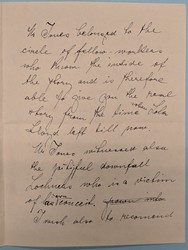 Mr Jones belonged to the
circle of fellow-workers
who know the inside of
the story and is therefore
able to give you the real
story from the time when Lola
Lloyd left till now.
Mr Jones witnessed also
the pitiful downfall
Lochner's who is a victim
of conceit.
I wish also to recommend